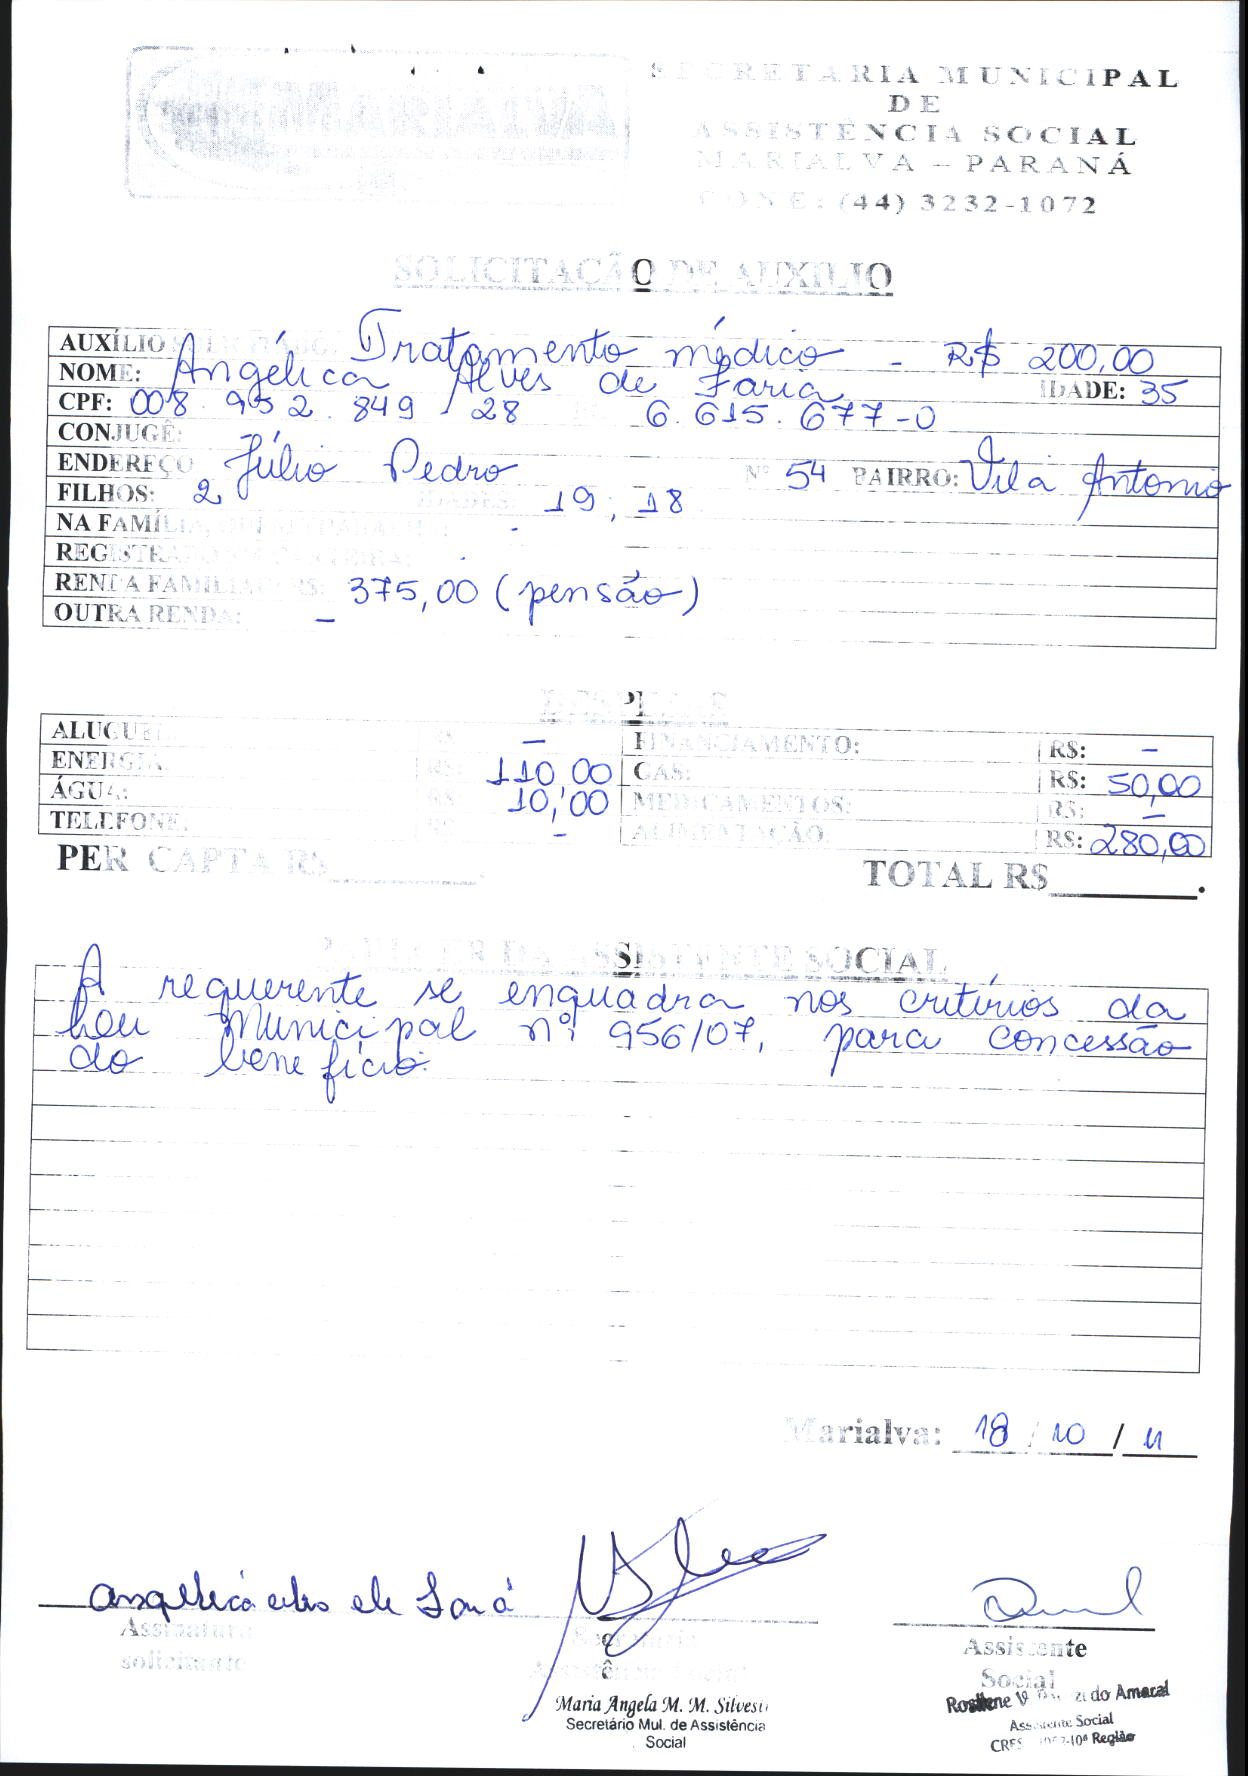 SECRETARIA MUNICIPAL
DE
ASSISTÊNCIA SOCIAL
MARIALVA – PARANÁ
FONE: (44) 3232-1072
SOLICITAÇÃO DE AUXILIO
AUXÍLIO SOLICITADO: Tratamento médico - R$ 200,00
NOME: Angélica Alves de Faria IDADE: 35
CPF: 008.952.849-28 6.615.677-0
CONJUGÊ: -
ENDEREÇO Júlio Pedro Nº 54 BAIRRO: Vila Antonio
FILHOS: 2 IDADES: 19, 18
NA FAMÍLIA, -
REGISTRADO EM CARTEIRA: -
RENDA FAMILIAR R$: 375,00 (pensão)
OUTRA RENDA: -
DESPESAS
ALUGUEL R$ - FINANCIAMENTO: R$: -
ENERGIA: R$: 110,00 GAS: R$: 50,00
ÁGUA: R$ 10,00 MEDICAMENTOS: R$: -
TELEFONE: R$ - ALIMENTAÇÃO: R$: 280,00
PER CAPTA R$ . TOTAL R$ .
PARECER DA ASSISTENTE SOCIAL
A requerente se enquadra nos critérios da
Lei Municipal nº 956/07, para concessão
do benefício.
Marialva: 18 / 10 / 11
Assinatura
solicitante
Secretaria
Assistência Social
Maria Angela M. M. Silvestri
Secretário Mul. de Assistência
Social
Assistente
Social
Rosilene do Amaral
Assistente Social
10ª Região